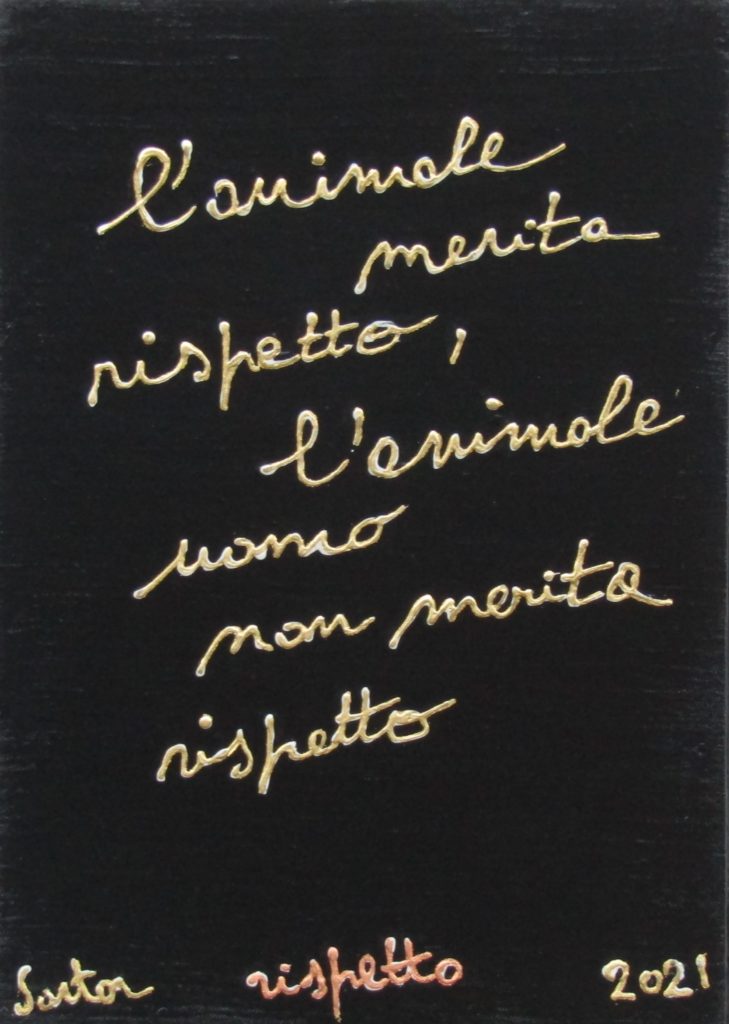 l'animale
merita
rispetto,
l'animale
uomo
non merita
rispetto
Sartor rispetto 2021